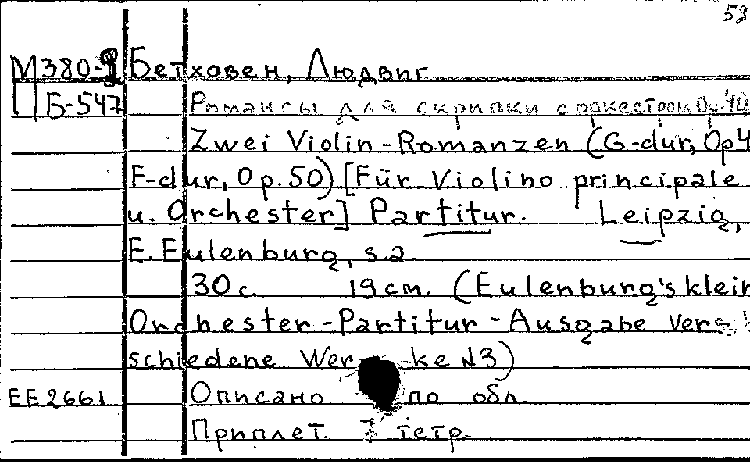 53
М380-9 Бетховен, Людвиг
Б-547 Романсы для скрипки с оркестром Op.40
Zwei Violin-Romanzen (G-dur, Op4
F-dur, Op.50) [Für Violino principale
u. Orchester] Partitur. Leipzig,
E. Eulenburg, s.a.
30 с. 19 cm. (Eulenburg's klein
Orchester-Partitur-Ausgabe Vers
schiedene Wer ke N3)
ЕЕ2661 Описано по обл.
Приплет. 7 тетр.